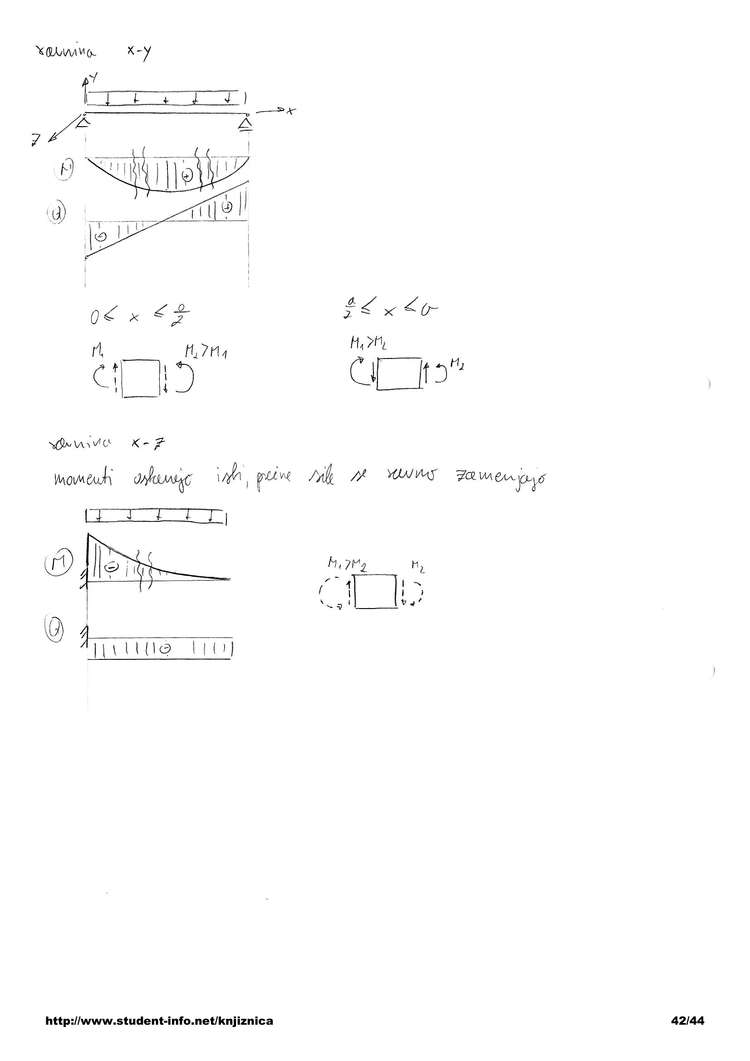 ravnina x-y
Y
x
z
M
+
Q
+
-
0 ≤ x ≤ a/2
a/2 ≤ x ≤ a
M₁ M₂>M₁
M₁>M₂ M₂
ravnina x-z
momenti ostanejo isti, prečne sile se ravno zamenjajo
M
-
M₁>M₂ M₂
Q
-
http://www.student-info.net/knjiznica 42/44